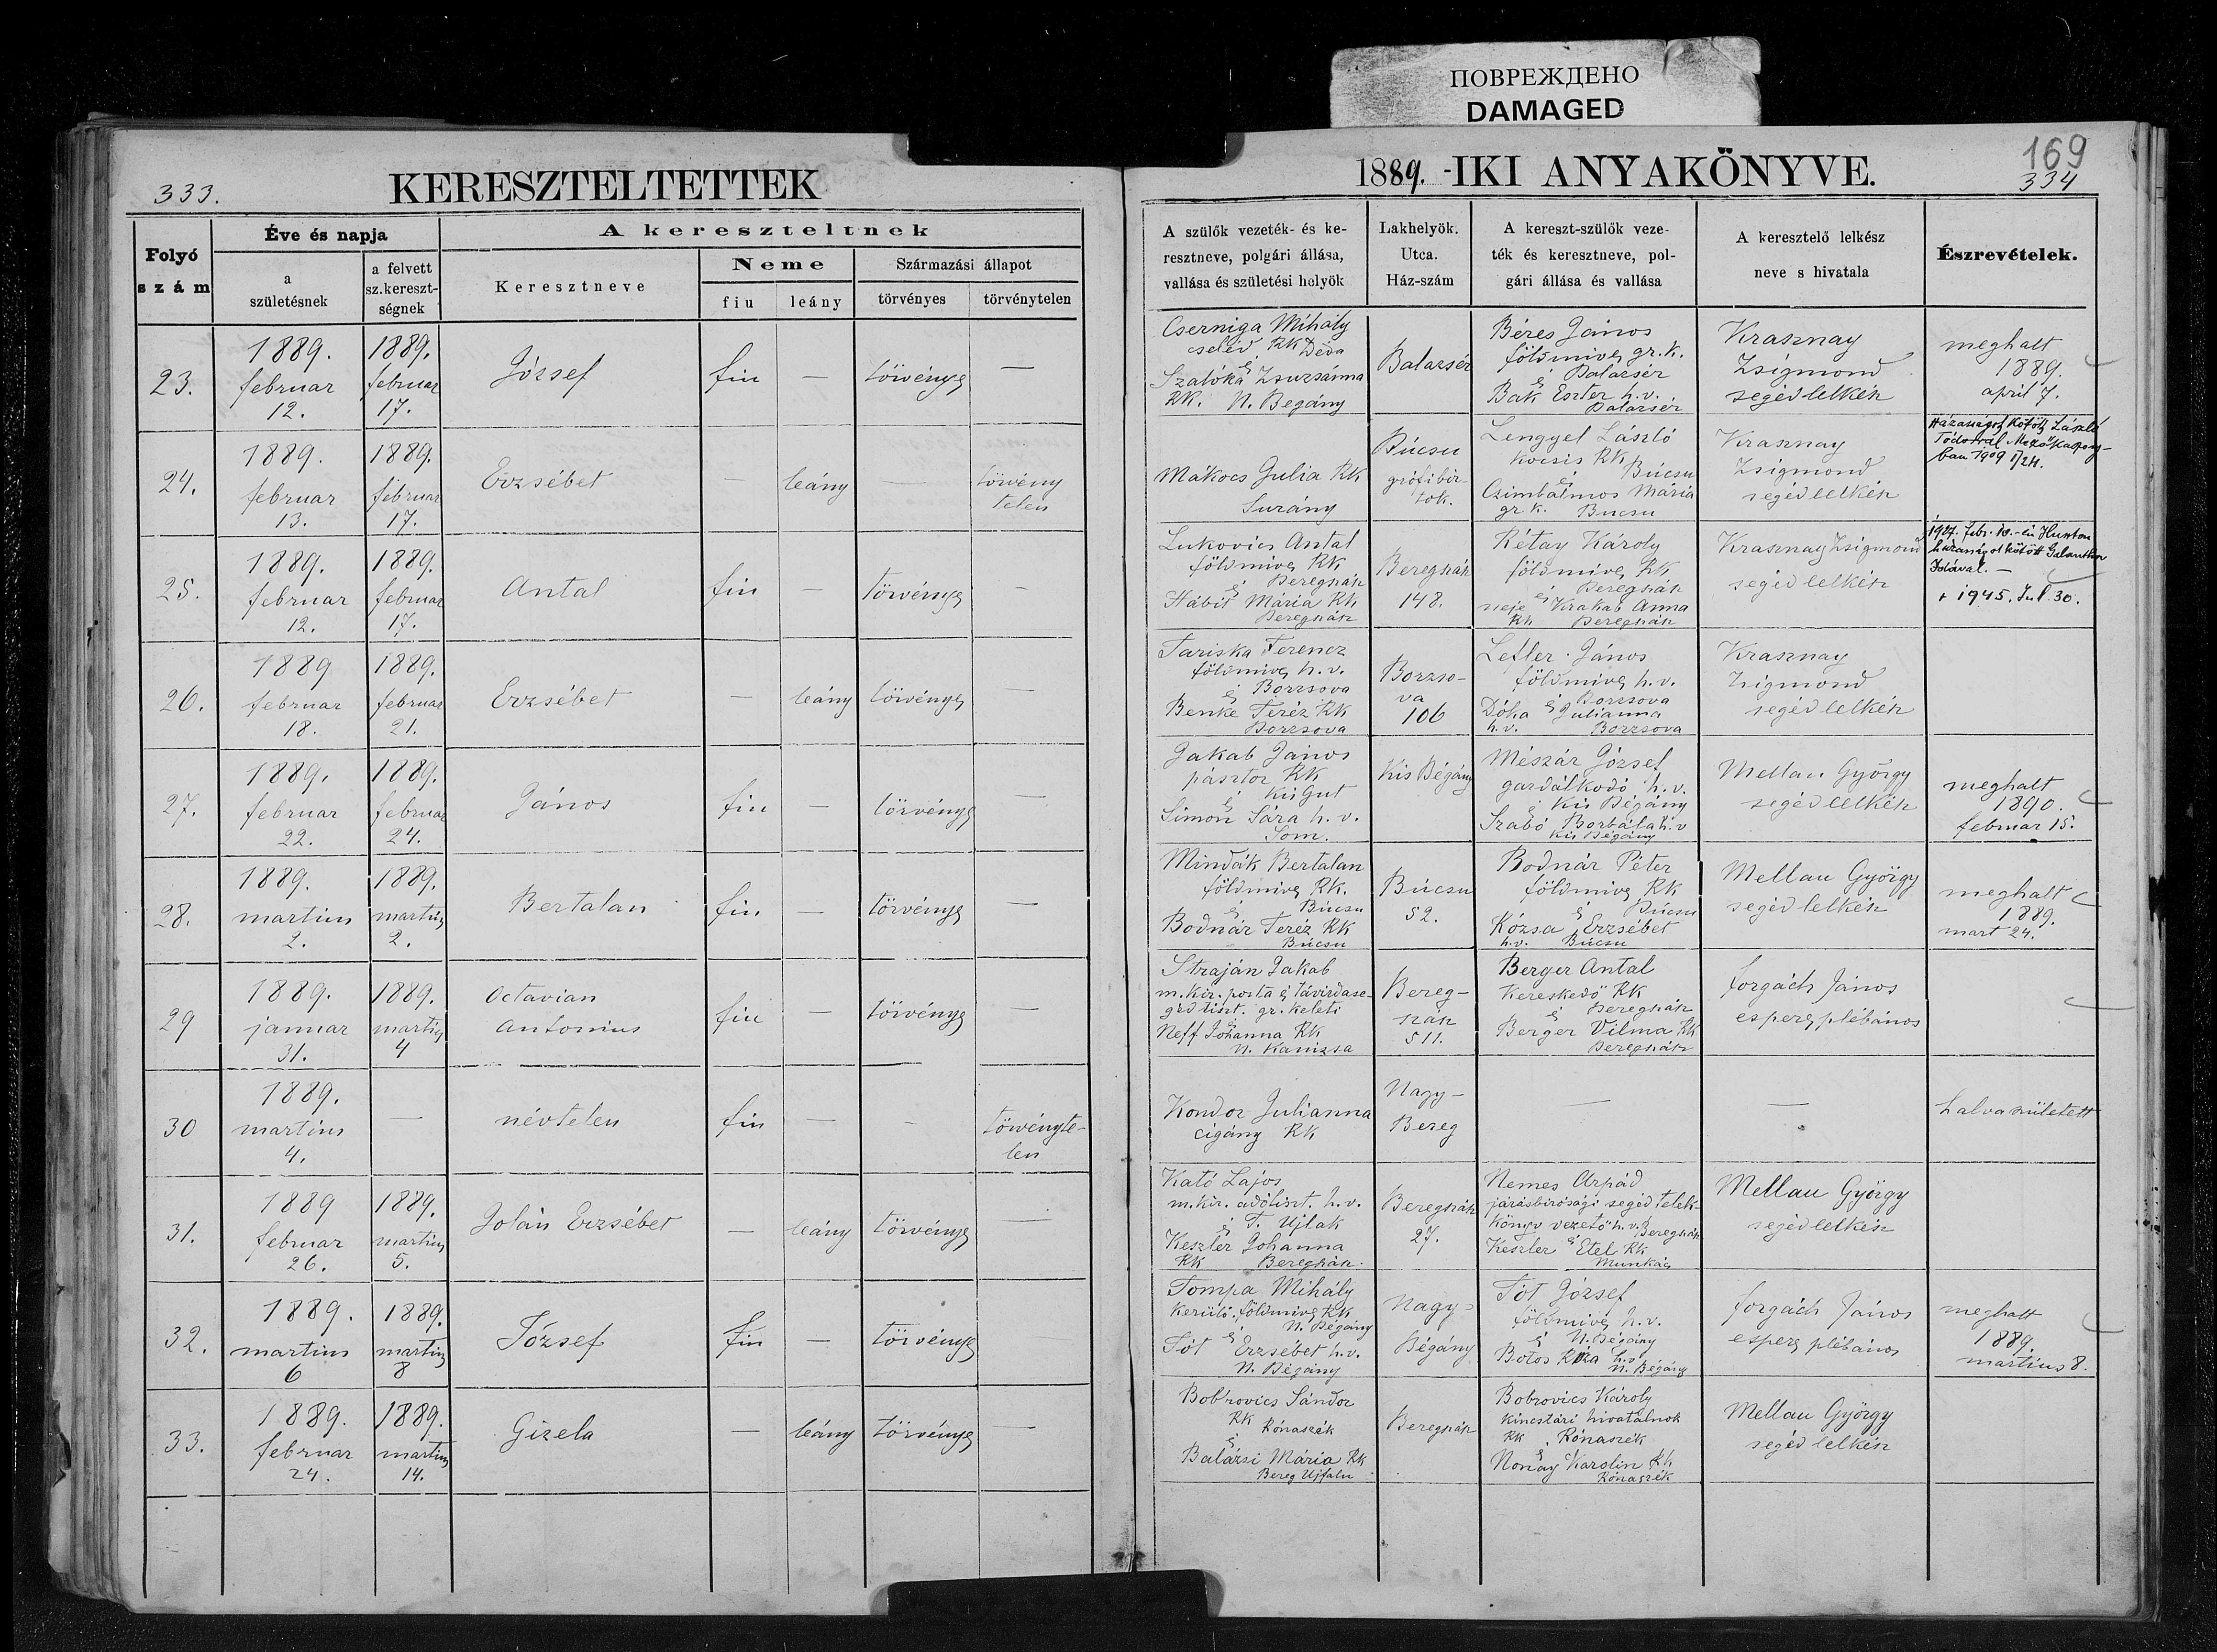 ПОВРЕЖДЕНО
DAMAGED
169
333.
KERESZTELTETTEK
1889. -IKI ANYAKÖNYVE.
334
Folyó szám
Éve és napja
a születésnek
a felvett sz. keresztségnek
A kereszteltnek
Keresztneve
Neme
fiu
leány
Származási állapot
törvényes
törvénytelen
A szülők vezeték- és keresztneve, polgári állása, vallása és születési helyök
Lakhelyök. Utca. Ház-szám
A kereszt-szülők vezeték és keresztneve, polgári állása és vallása
A keresztelő lelkész neve s hivatala
Észrevételek.
23.
1889. februar 12.
1889. februar 17.
József
fiu
—
törvényes
—
Cserniga Mihály
cseléd RK Déda
é
Szalóka Zsuzsánna
RK. N. Begány
Balazsér
Béres János
földmives gr. k.
é Balazsér
Bak Eszter h.v.
Balazsér
Krasznay
Zsigmond
segédlelkész
meghalt
1889.
april 7.
24.
1889. februar 13.
1889. februar 17.
Erzsébet
—
leány
—
törvény
telen
Makocs Gulia RK
Surány
Búcsu
grófi bir-
tok.
Lengyel László
kocsis RK
é Búcsu
Czimbalmos Mária
gr. k. Bucsu
Krasznay
Zsigmond
segédlelkész
Házasságot kötött László
Tódorral Mezőkaszony-
ban 1909 I/24.
25.
1889. februar 12.
1889. februar 17.
Antal
fiu
—
törvényes
—
Lukovics Antal
földmives RK
é Beregszász
Hábit Mária RK
Beregszász
Beregszász
148.
Rétay Károly
földmives RK
é Beregszász
neje Krahab Anna
Rk Beregszász
Krasznay Zsigmond
segédlelkész
házasságot kötött
Idával. —
+ 1945. Jul. 30.
26.
1889 februar 18.
1889. februar 21.
Erzsébet
—
leány
törvényes
—
Tariska Ferencz
földmives h.v.
é Borzsova
Benke Teréz RK
Borzsova
Borzso-
va
106
Letler János
földmives h.v.
é Borzsova
Dóka Julianna
h.v. Borzsova
Krasznay
Zsigmond
segédlelkész
27.
1889. februar 22.
1889. februar 24.
János
fiu
—
törvényes
—
Jakab János
pásztor RK
é Kis Gut
Simon Sára h.v.
Som.
Kis Bégány
Mészár József
gazdálkodó h.v.
é Kis Bégány
Szabó Borbála h.v
Kis Bégány
Mellau György
segédlelkész
meghalt
1890.
februar 15.
28.
1889. martius 2.
1889. martius 2.
Bertalan
fiu
—
törvényes
—
Mindák Bertalan
földmives RK.
é Búcsu
Bodnár Teréz RK
Búcsu
Búcsu
52.
Bodnár Péter
földmives RK
é Búcsu
Rózsa Erzsébet
h.v. Búcsu
Mellau György
segédlelkész
meghalt
1889.
mart 24.
29
1889. januar 31.
1889. martius 4
Octavian
Antonius
fiu
—
törvényes
—
Straján Jakab
m. kir. posta és távirdase-
géd tiszt. gr. keleti
é
Neff Johanna RK
N. Kanizsa
Bereg-
szász
511.
Berger Antal
Kereskedő RK
é Beregszász
Berger Vilma RK
Beregszász
forgách János
esperes plébános
30
1889. martius 4.
—
névtelen
fiu
—
-
törvényte-
len
Kondor Julianna
cigány RK
Nagy-
Bereg
—
—
halva született
31.
1889 februar 26.
1889. martius 5.
Jolán Erzsébet
—
leány
törvényes
—
Kató Lajos
m. kir. adótiszt. h.v.
é T. Ujlak
Keszler Johanna
RK Beregszász.
Beregszász
27.
Nemes Arpád
járásbirósági segéd telek-
könyv vezető h.v. Beregszász
é
Keszler Etel RK
Munkács
Mellau György
segédlelkész
32.
1889. martius 6
1889. martius 8
József
fiu
—
törvényes
Tompa Mihály
kerülő földmives RK
é N. Bégány
Tót Erzsebet h.v.
N. Bégány
Nagy-
Bégány
Tót József
földmives h.v.
é N. Bégány
Botos Róza h.v
N. Bégány
forgách János
esperes plébános
meghalt
1889.
martius 8.
33.
1889. februar 24.
1889. martius 14.
Gizela
—
leány
törvényes
—
Bobrovics Sándor
RK
Rónaszék
é
Balázsi Mária RK
Bereg Ujfalu
Beregszász
Bobrovics Károly
kincstári hivatalnok
RK Rónaszék
é
Nonay Karolin RK
Rónaszék
Mellau György
segédlelkész